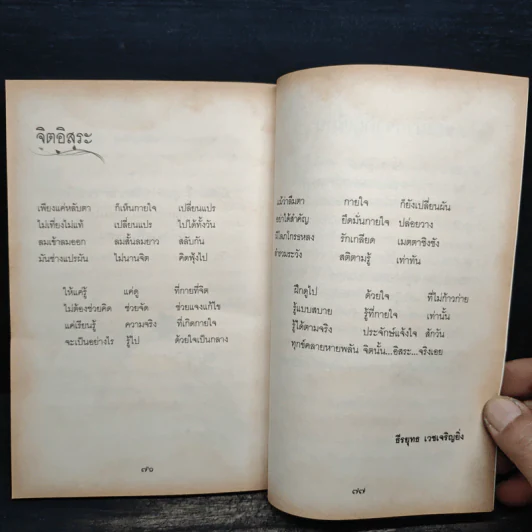 จิตอิสระ
เพียงแค่หลับตา ก็เห็นกายใจ เปลี่ยนแปร
ไม่เที่ยงไม่แท้ เปลี่ยนแปร ไปได้ทั้งวัน
ลมเข้าลมออก ลมสั้นลมยาว สลับกัน
มันช่างแปรผัน ไม่นานจิต คิดฟุ้งไป
ให้แค่รู้ แค่ดู ที่กายที่จิต
ไม่ต้องช่วยคิด ช่วยจัด ช่วยแจงแก้ไข
แค่เรียนรู้ ความจริง ที่เกิดกายใจ
จะเป็นอย่างไร รู้ไป ด้วยใจเป็นกลาง
๗๖
แม้ว่าลืมตา กายใจ ก็ยังเปลี่ยนผัน
อย่าได้สำคัญ ยึดมั่นกายใจ ปล่อยวาง
รักเกลียด เมตตาชิงชัง
สติตามรู้ เท่าทัน
ฝึกดูไป ด้วยใจ ที่ไม่ก้าวก่าย
รู้แบบสบาย รู้ที่กายใจ เท่านั้น
รู้ได้ตามจริง ประจักษ์แจ้งใจ สักวัน
ทุกข์คลายหายพลัน จิตนั้น...อิสระ...จริงเอย
ธีรยุทธ เวชเจริญยิ่ง
๗๗